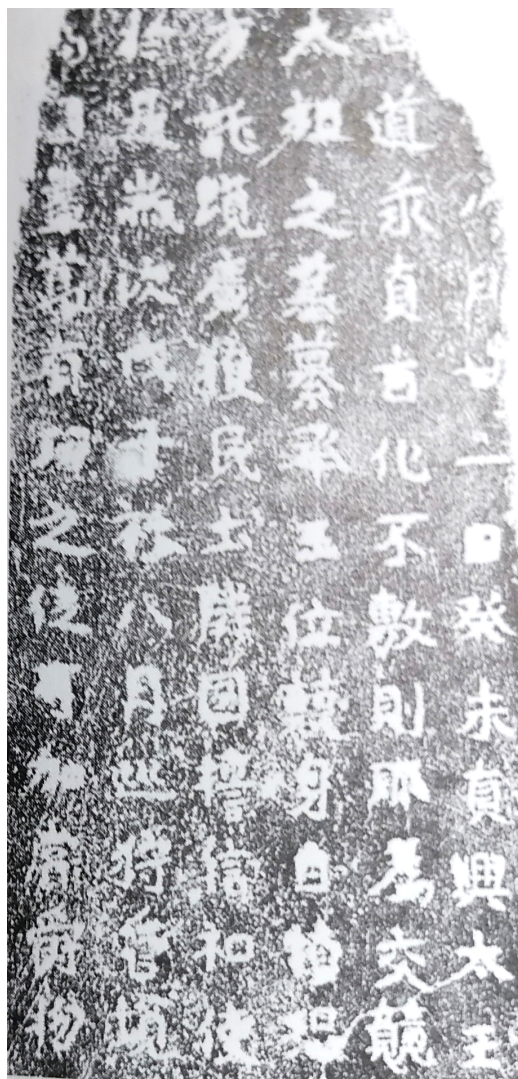 八月廿二日癸未眞興太王
世道乖眞旨化不敷則耶爲交競
太祖之基纂承王位兢身自愼恐
方託境廣獲民土隣國誓信和使
於是歲次戊子秋八月巡狩管境
爲國盡節有功之徒可加賞爵物